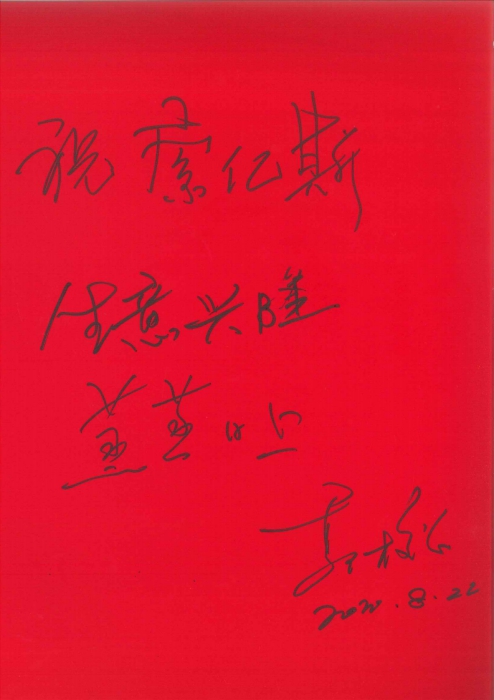 祝索亿斯
生意兴隆
蒸蒸日上
2020.8.22